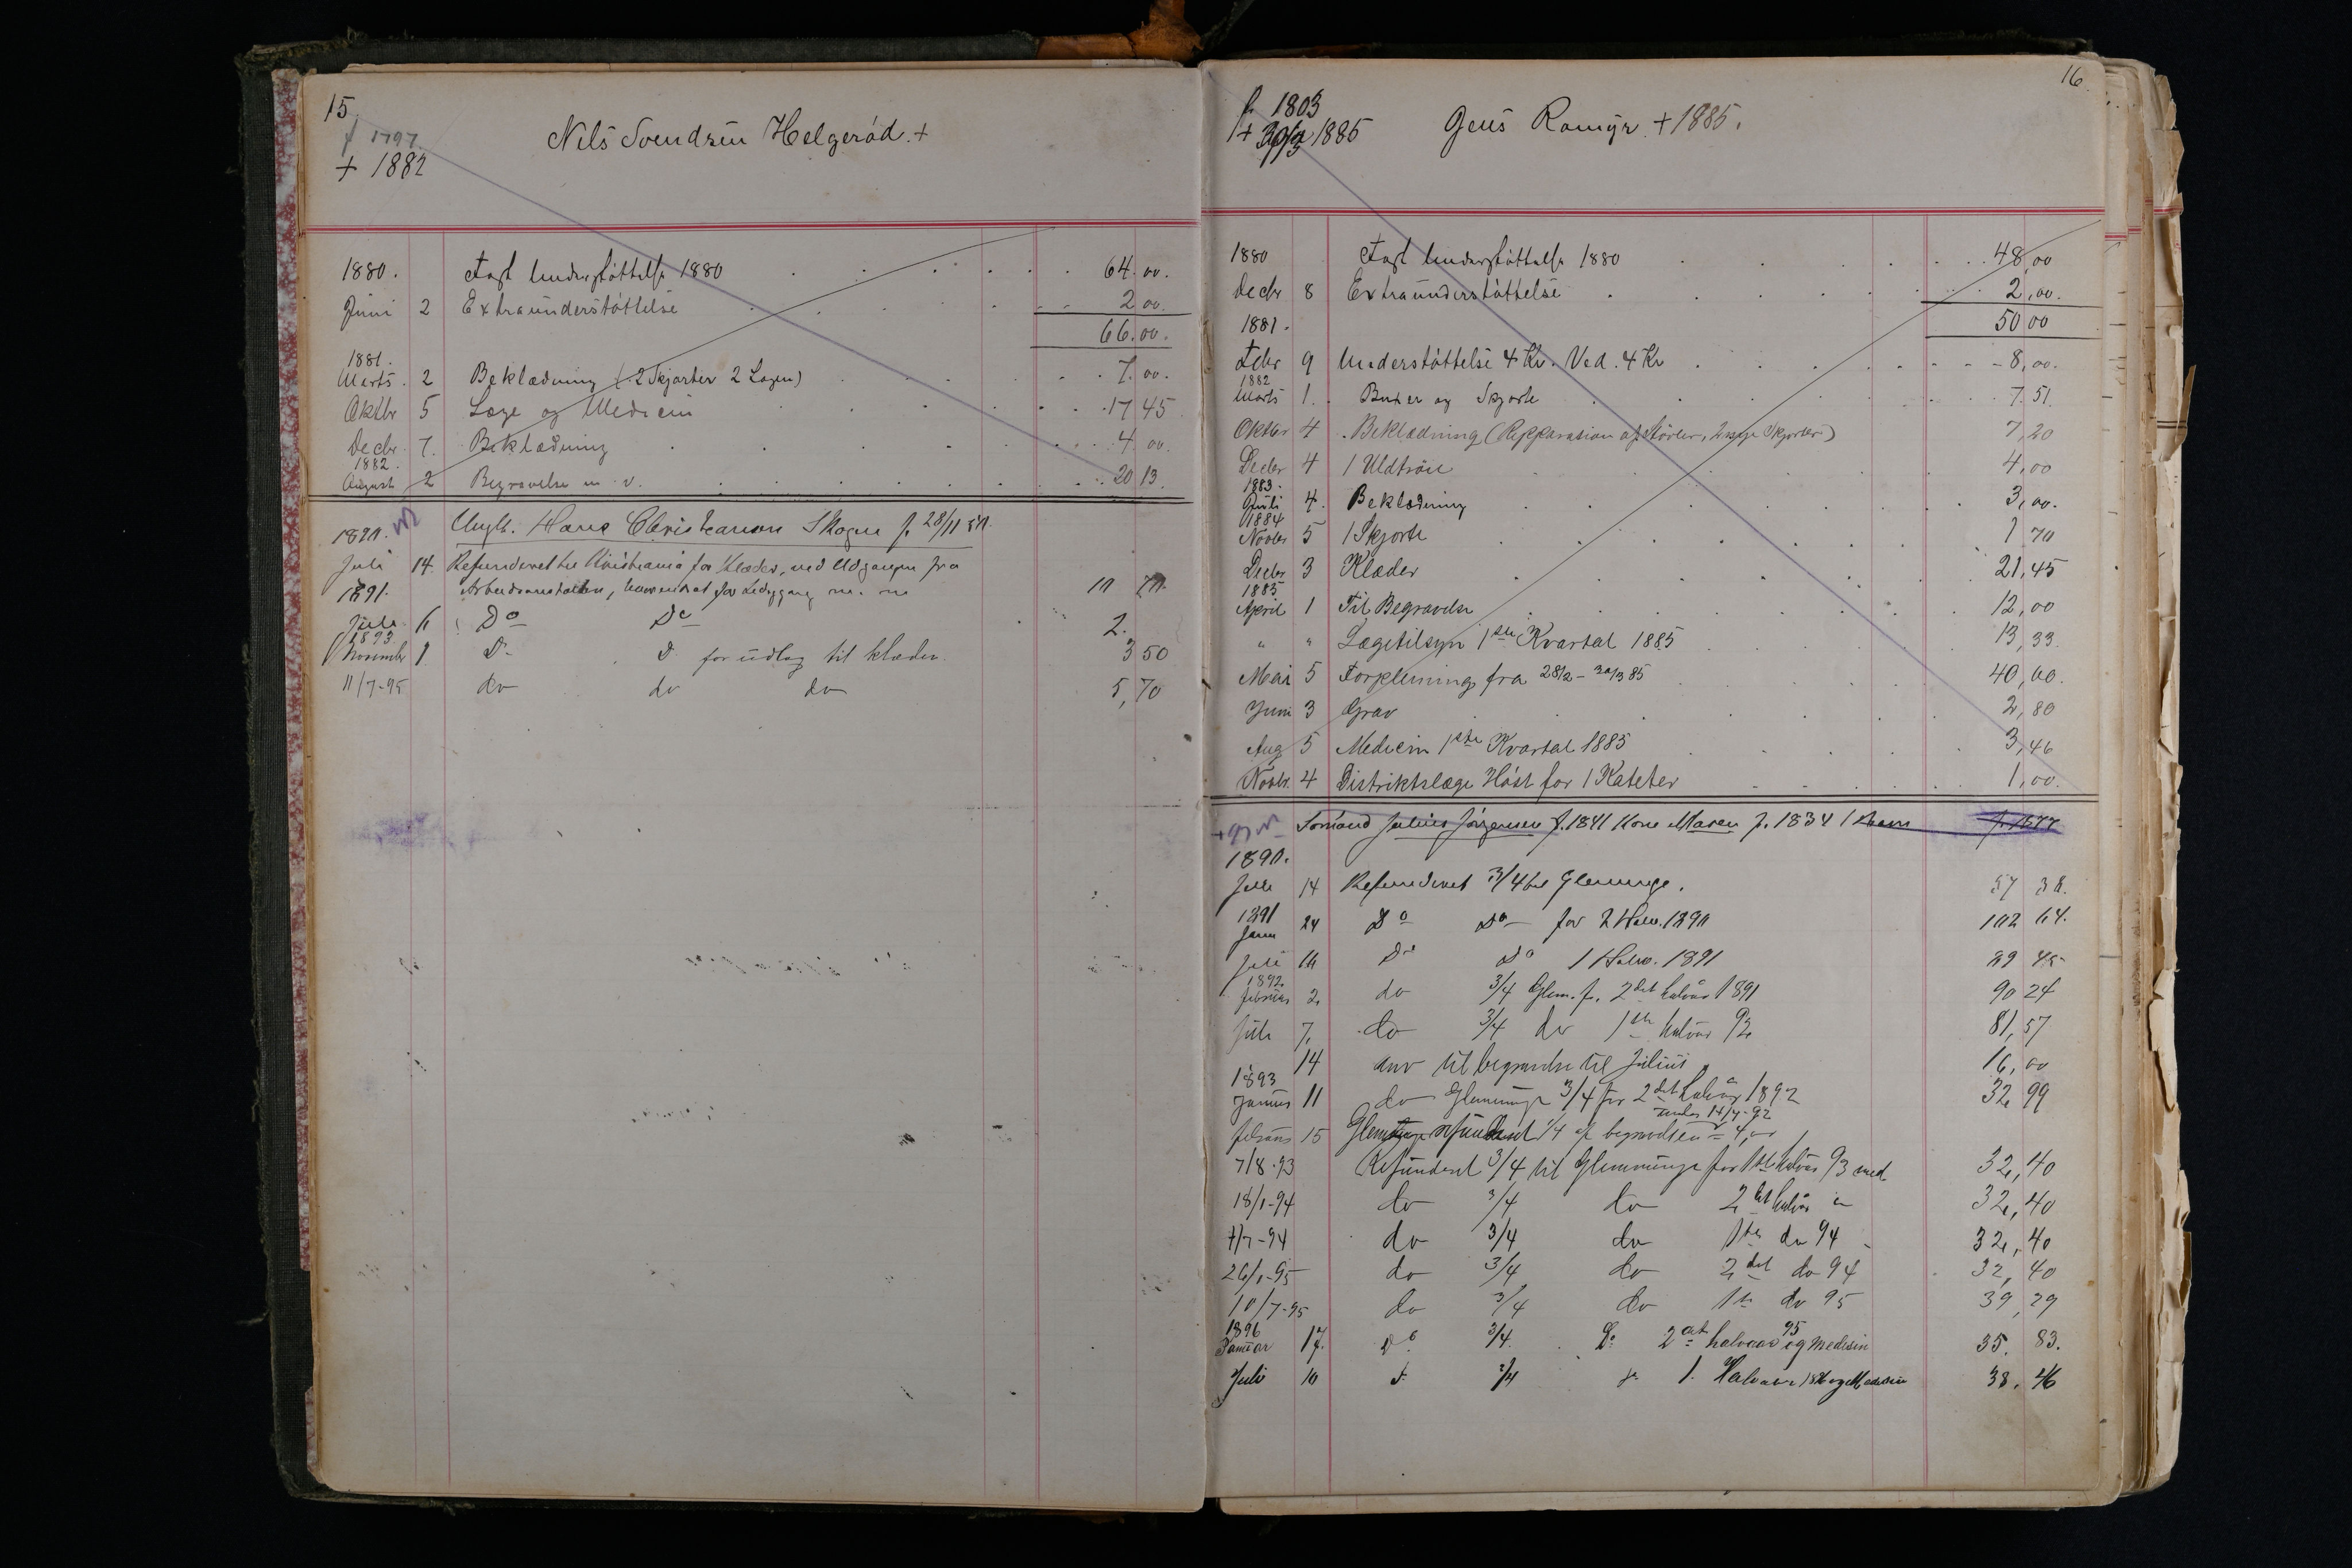 15
f 1797.
+ 1882
Nils Svendsen Helgeröd. +
1880. Fast Understöttelse 1880 64.00.
Juni 2 Extraunderstöttelse 2.00.
66.00.
1881.
Marts. 2 Beklædning (2 Skjorter 2 Lagen) 7.00.
Oktbr 5 Læge og Medicin 17 45
Decbr. 7. Beklædning 4 00.
1882.
August 2 Begravelse m. v. 20 13.
Ungk. Hans Christianson Skogen f. 28/11
1890.
Juli 14. Refunderet til Kristiania for Klæder, ved Udgangen fra
1891. Arbeidsanstalten, for Ledggang 10 70.
Juli 6 Do Do 2.
1893
November 1 Do D. for udlæg til klæder. 3 50
11/7-95 do do do 5,70
16.
f. 1803
+ 1885
Jens Ramyr + 1885.
1880 Fast Understöttelse 1880 48,00
Decbr 8 Extraunderstöttelse 2,00.
1881. 50 00
Febr 9 Understöttelse 4 Kr. Ved. 4 Kr 8,00.
1882
Marts 1. Buxer og Skjorte 7.51.
Oktbr 4 Beklædning (Repparasion af Störler, 2 nye Skjorter) 7,20
Decbr 4 1 Uldtröie 4,00
1883.
Juli 4. Beklædning 3,00.
1884
Novbr 5 1 Skjorte 1 70
Decbr 3 Klæder 21,45
1885
April 1 Til Begravelse 12,00
" " Lægetilsyn 1ste Kvartal 1885 13,33.
Mai 5 Forpleining fra 28/2 - 30/3 85 40,00.
Juni 3 Grav 2,80
Aug 5 Medicin 1ste Kvartal 1885 3,46
Novbr. 4 Distriktslæge Höst for 1 Kateter 1,00.
Sömand Julius Jörgensen f. 1841 Kone Maren f. 1834 1 Barn f. 1877
1890.
Juli 14 Refunderet 3/4 til Glemminge. 57 38.
1891
Janu 24 Do Do for 2 Halv. 1890 102 64.
Juli Do Do 1 Halv. 1891 89 45
1892
februar 2. do 3/4 Glem. f. 2det halvår 1891 90 24
Juli 7. do 3/4 do 1ste halvår 92 81,57
14 anv til begravelse til Julius 16,00
1893
Januar 11 do Glemminge 3/4 for 2det halvår 1892 32 99
februar 15 refunderet 1/4 af begravelsen = 4,00
7/8-93 Refunderet 3/4 til Glemminge for 1ste halvår 93 med 32,40
18/1-94 do 3/4 do 2det halvår 32,40
7/7-94 do 3/4 do 1ste do 94 32,40
26/1-95 do 3/4 do 2det do 94 32,40
10/7-95 do 3/4 do 1ste do 95 39,29
1896
Januar 17. Do 3/4. Do 2det halvaar 95 og medesin 35.83.
Juli 10 3/4 1. Halvaar 1896 og Medesin 38.46